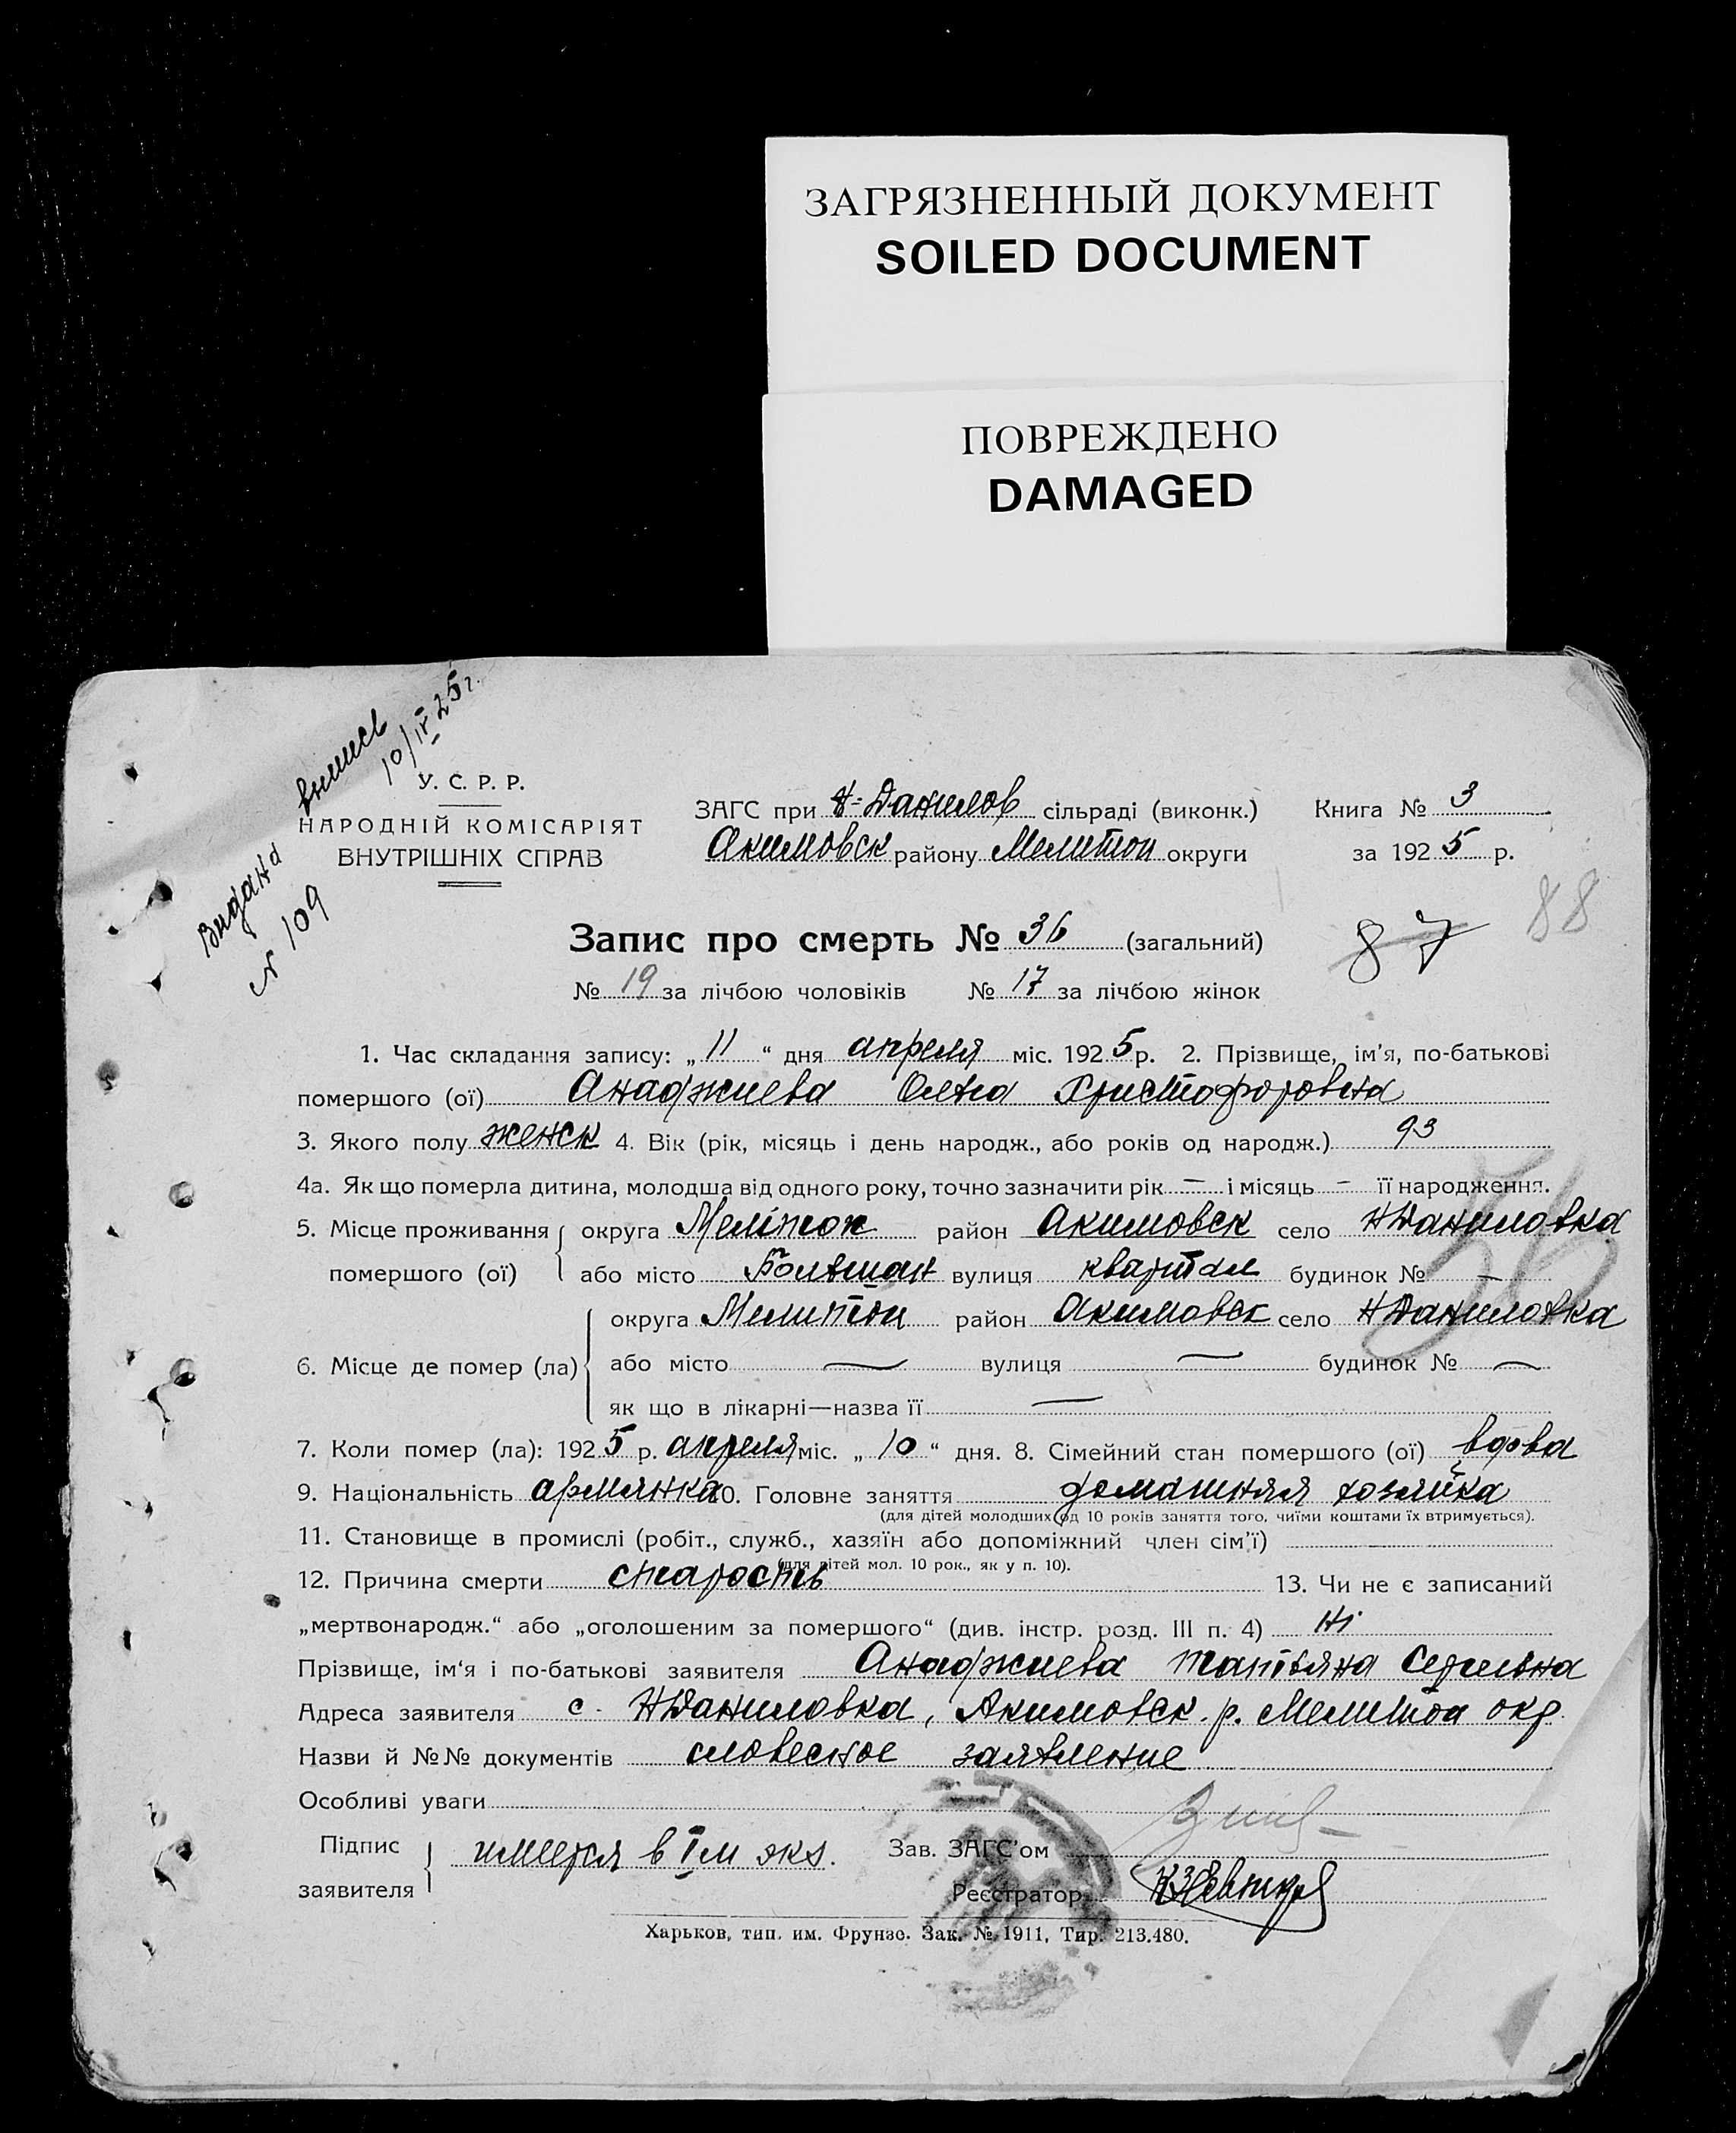 ЗАГРЯЗНЕННЫЙ ДОКУМЕНТ
SOILED DOCUMENT
ПОВРЕЖДЕНО
DAMAGED
Видана
выпись
№ 109
10/IV 25 г.
У. С. Р. Р.
НАРОДНІЙ КОМІСАРІЯТ
ВНУТРІШНІХ СПРАВ
ЗАГС при Н-Данилов сільраді (виконк.) Книга № 3
Акимовск району Мелитоп округи за 1925 р.
Запис про смерть № 36 (загальний)
87 88
№ 19 за лічбою чоловіків № 17 за лічбою жінок
1. Час складання запису: „11“ дня апреля міс. 1925 р. 2. Прізвище, ім’я, по-батькові
помершого (ої) Анаджиева Олена Христофоровна
3. Якого полу женск 4. Вік (рік, місяць і день народж., або років од народж.) 93
4а. Як що померла дитина, молодша від одного року, точно зазначити рік — і місяць - її народження.
36
5. Місце проживання округа Мелітоп район Акимовск село НДаниловка
помершого (ої) або місто вулиця квартал будинок № —
округа Мелитоп район Акимовск село НДаниловка
6. Місце де помер (ла) або місто — вулиця — будинок № —
як що в лікарні—назва її —
7. Коли помер (ла): 1925 р. апреля міс. „10“ дня. 8. Сімейний стан помершого (ої) вдова
9. Національність армянка 10. Головне заняття домашняя хозяйка
(для дітей молодших од 10 років заняття того, чиїми коштами їх втримується).
11. Становище в промислі (робіт., служб., хазяїн або допоміжний член сім’ї)
(для дітей мол. 10 рок., як у п. 10).
12. Причина смерти старость 13. Чи не є записаний
„мертвонародж.“ або „оголошеним за помершого“ (див. інстр. розд. III п. 4) Ні
Прізвище, ім‘я і по-батькові заявителя Анаджиева Татьяна
Адреса заявителя с. НДаниловка, Акимовск. р. Мелитоп окр.
Назви й №№ документів словесное заявление
Особливі уваги
Підпис
заявителя
имеется в I м экз.
Зав. ЗАГС’ом
Реєстратор
Харьков, тип. им. Фрунзе. Зак. № 1911, Тир. 213.480.